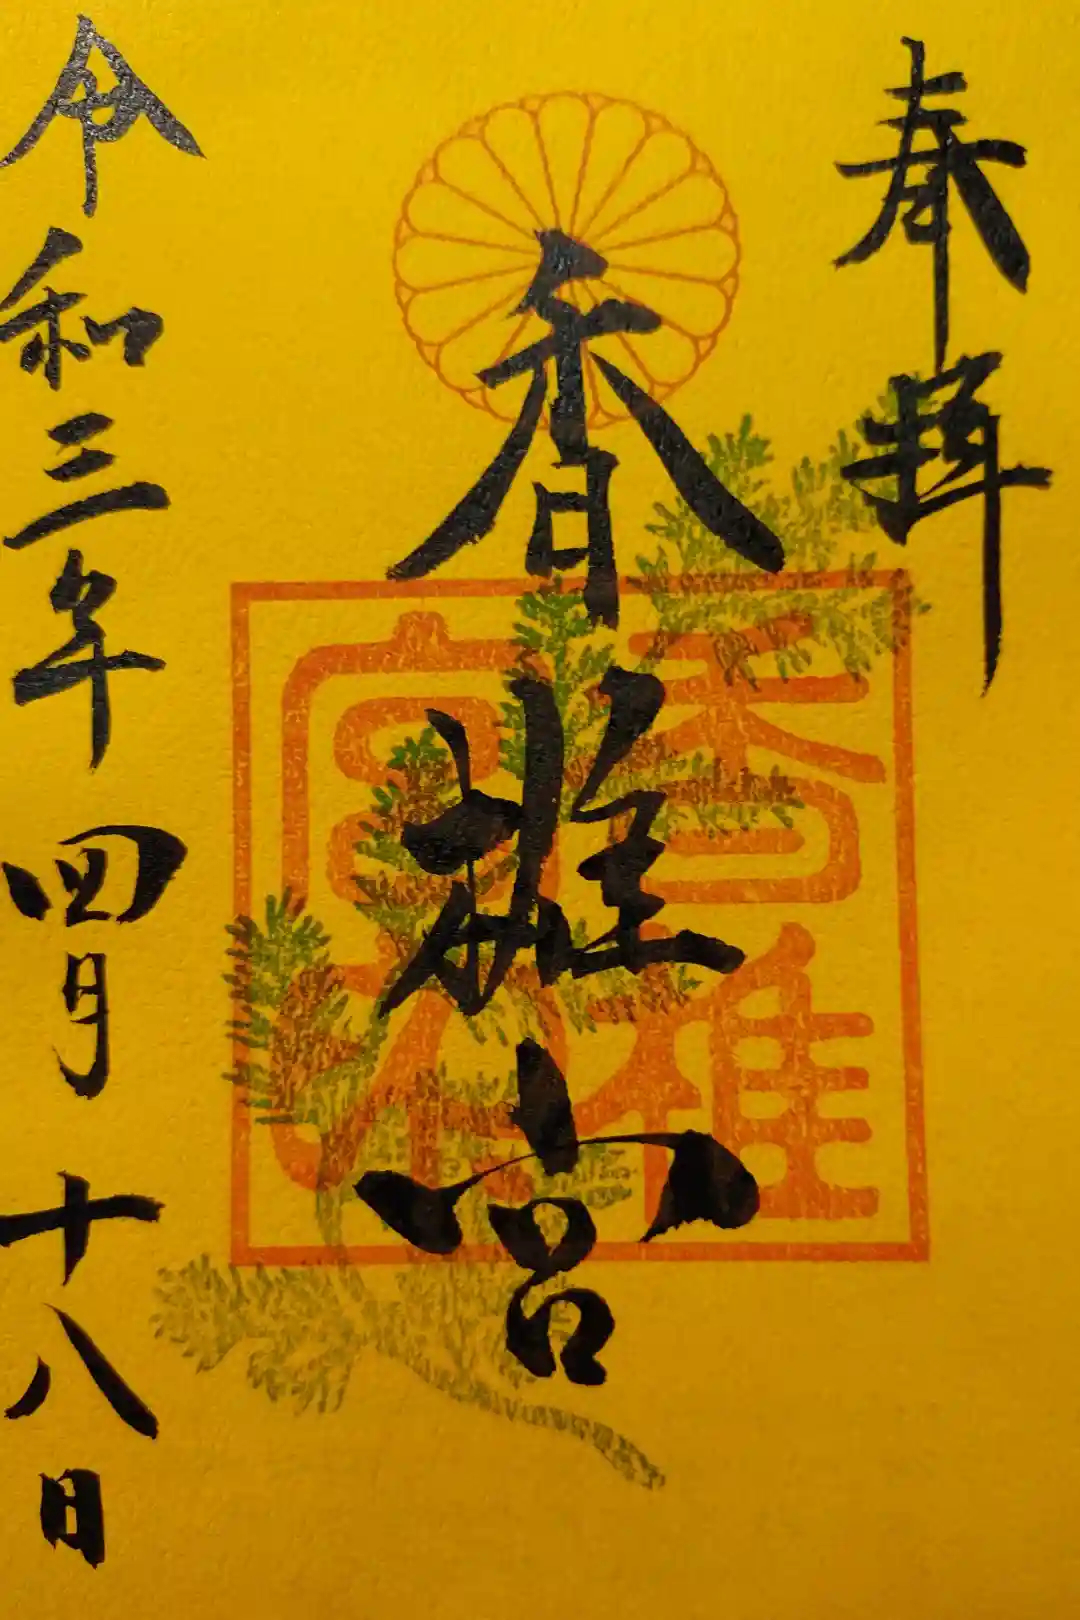 奉拝
香椎宮
香椎宮印
令和三年四月十八日